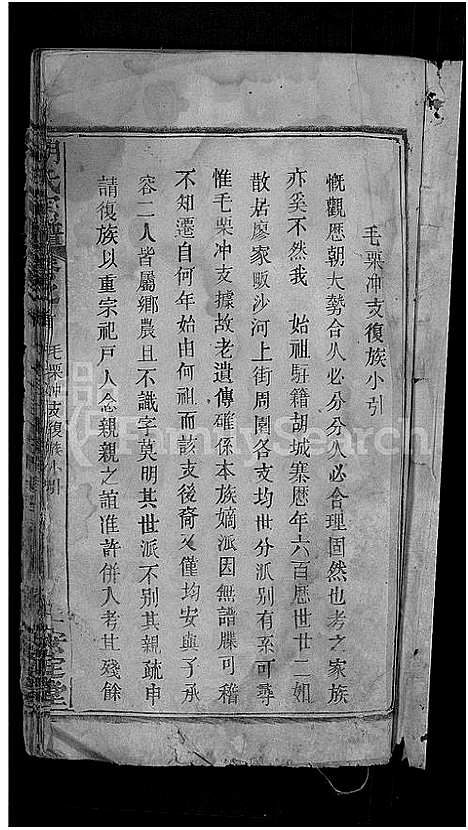 毛栗冲支復族小引
慨觀歷朝大勢合久必分分久必合理固然也考之家族
亦奚不然我 始祖駢籍胡城寨歷年六百歷世廿二如
散居廖家畈沙河上街周園各支均世分派別有系可尋
惟毛栗冲支據故老遺傳確係本族嫡派因無譜牒可稽
不知遷自何年始由何祖而該支後裔又僅均安與子承
容二人皆屬鄉農且不識字莫明其世派不別其親疏申
請復族以重宗祀戶人念親親之誼准許併入考其殘餘
氏宗譜
毛栗冲支復族小引
安定堂
FamilySearch